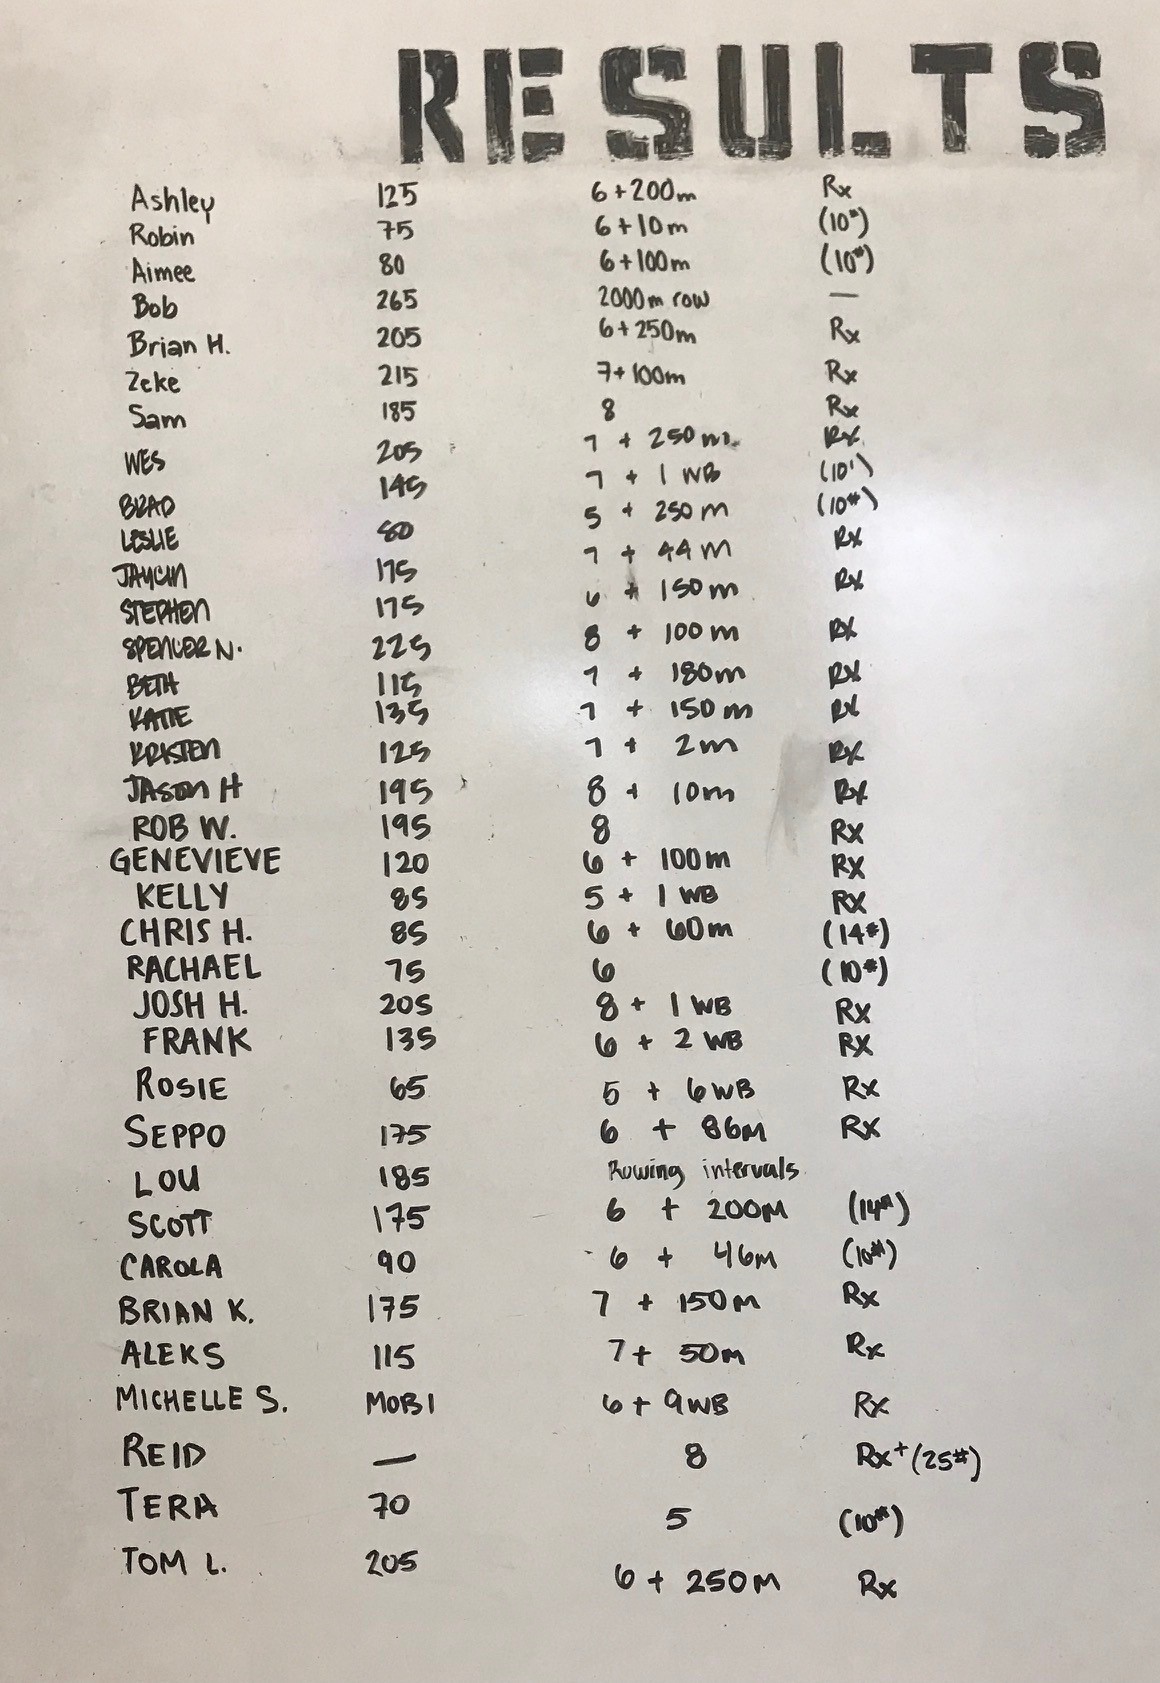 RESULTS
Ashley 125 6+200m Rx
Robin 75 6+10m (10#)
Aimee 80 6+100m (10#)
Bob 265 2000m row —
Brian H. 205 6+250m Rx
Zeke 215 7+100m Rx
Sam 185 8 Rx
WES 205 7 + 250m. Rx
BRAD 145 7 + 1 WB (10')
LESLIE 80 5 + 250m (10#)
JAYCIN 175 7 + 44m Rx
STEPHEN 175 6 + 150m Rx
SPENCER N. 225 8 + 100m Rx
BETH 115 7 + 180m Rx
KATIE 135 7 + 150m Rx
KRISTEN 125 7 + 2m Rx
JASON H 195 8 + 10m Rx
ROB W. 195 8 Rx
GENEVIEVE 120 6 + 100m Rx
KELLY 85 5 + 1 WB Rx
CHRIS H. 85 6 + 60m (14#)
RACHAEL 75 6 (10#)
JOSH H. 205 8 + 1 WB Rx
FRANK 135 6 + 2 WB Rx
ROSIE 65 5 + 6WB Rx
SEPPO 175 6 + 86M Rx
LOU 185 Rowing intervals
SCOTT 175 6 + 200M (14#)
CAROLA 90 6 + 46M (10#)
BRIAN K. 175 7 + 150M Rx
ALEKS 115 7+ 50M Rx
MICHELLE S. MOBI 6+9WB Rx
REID — 8 Rx+(25#)
TERA 70 5 (10#)
TOM L. 205 6+250M Rx